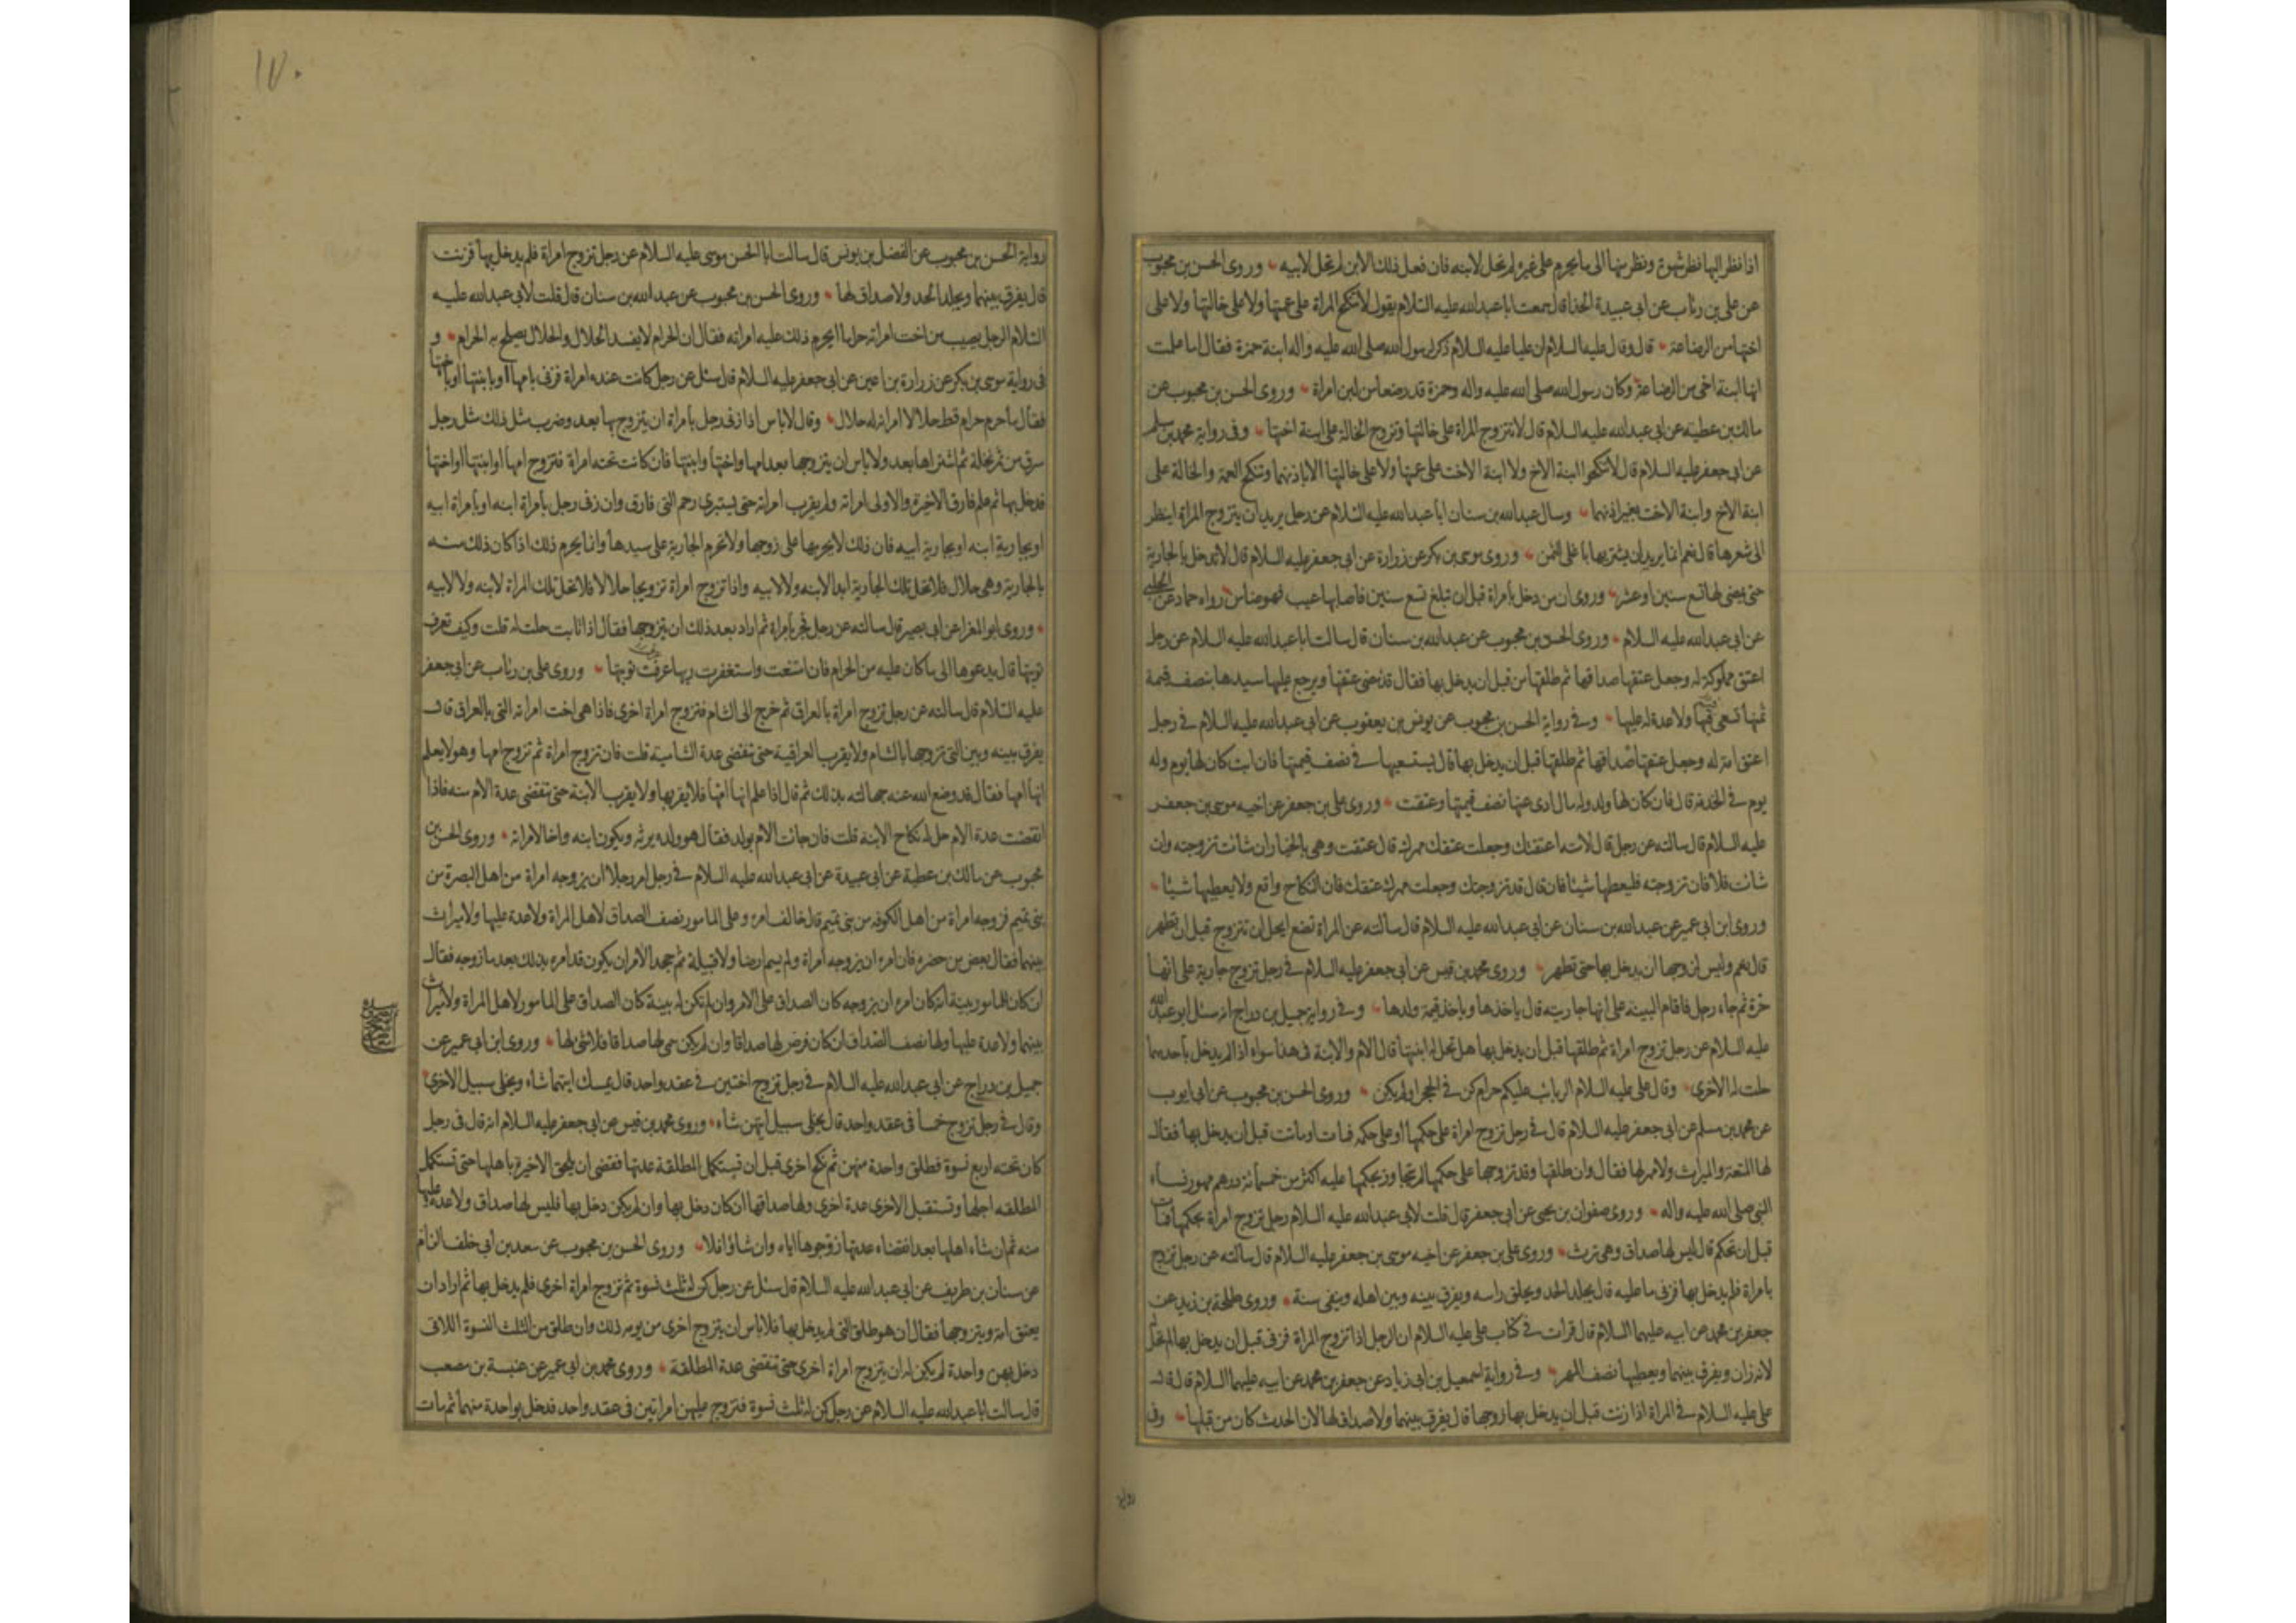 اذا نظر اليها نظر شهوة ونظر منها الى ما يحرم على غيره لم تحل لابنه فان فعل ذلك الابن لم تحل لابيه وروى الحسن بن محبوب
عن على بن رئاب عن ابى عبيدة الحذا قال سمعت ابا عبدالله عليه السلام يقول لا تنكح المراة على عمتها ولا على خالتها ولا على
اختها من الرضاعة قال وقال عليه السلام ان عليا عليه السلام ذكر لرسول الله صلى الله عليه واله ابنة حمزة فقال اما علمت
انها ابنة اخى من الرضاعة وكان رسول الله صلى الله عليه واله وحمزة قد رضعا من لبن امراة وروى الحسن بن محبوب عن
مالك بن عطيه عن ابى عبدالله عليه السلام قال لا تتزوج المراة على خالتها وتزوج الخالة على ابنة اختها وفى رواية محمد بن مسلم
عن ابى جعفر عليه السلام قال لا تنكحوا ابنة الاخ ولا ابنة الاخت على عمتها ولا على خالتها الا باذنهما وتنكح العمة والخالة على
ابنة الاخ وابنة الاخت بغير اذنهما وسال عبدالله بن سنان ابا عبدالله عليه السلام عن رجل يريد ان يتزوج المراة اينظر
الى شعرها قال نعم انما يريد ان يشتريها باغلى الثمن وروى موسى بن بكر عن زرارة عن ابى جعفر عليه السلام قال لا تدخل بالجارية
حتى يمضى لها تسع سنين او عشر وروى ان من دخل بامراة قبل ان تبلغ تسع سنين فاصابها عيب فهو ضامن رواه حماد عن الحلبى
عن ابى عبدالله عليه السلام وروى الحسن بن محبوب عن عبدالله بن سنان قال سالت ابا عبدالله عليه السلام عن رجل
اعتق مملوكة له وجعل عتقها صداقها ثم طلقها من قبل ان يدخل بها فقال قد مضى عتقها ويرجع عليها سيدها بنصف قيمة
ثمنها تسعى فيها ولا عدة له عليها وفى رواية الحسن بن محبوب عن يونس بن يعقوب عن ابى عبدالله عليه السلام فى رجل
اعتق امة له وجعل عتقها صداقها ثم طلقها قبل ان يدخل بها قال يستسعيها فى نصف قيمتها فان ابت كان لها يوم وله
يوم فى الخدمة قال فان كان لها ولد وله مال ادى عنها نصف قيمتها وعتقت وروى على بن جعفر عن اخيه موسى بن جعفر
عليه السلام قال سالته عن رجل قال لامته اعتقتك وجعلت عتقك مهرك قال عتقت وهى بالخيار ان شائت تزوجته وان
شائت فلا فان تزوجته فليعطها شيئا فان قال قد تزوجتك وجعلت مهرك عتقك فان النكاح واقع ولا يعطيها شيئا
وروى ابن ابى عمير عن عبدالله بن سنان عن ابى عبدالله عليه السلام قال سالته عن المراة تضع ايحل ان تتزوج قبل ان تطهر
قال نعم وليس لزوجها ان يدخل بها حتى تطهر وروى محمد بن قيس عن ابى جعفر عليه السلام فى رجل تزوج جارية على انها
حرة ثم جاء رجل فاقام البينة على انها جاريته قال ياخذها وياخذ قيمة ولدها وفى رواية جميل بن دراج انه سئل ابو عبدالله
عليه السلام عن رجل تزوج امراة ثم طلقها قبل ان يدخل بها هل تحل له ابنتها قال الام والابنة فى هذا سواء اذا لم يدخل باحديهما
حلت له الاخرى وقال على عليه السلام الربائب عليكم حرام كن فى الحجر او لم يكن وروى الحسن بن محبوب عن ابى ايوب
عن محمد بن مسلم عن ابى جعفر عليه السلام قال فى رجل تزوج امراة على حكمها او على حكمه فمات او ماتت قبل ان يدخل بها فقال
لها المتعة والميراث ولا مهر لها فقال وان طلقها وقد تزوجها على حكمها لم تجاوز بحكمها عليه اكثر من خمسمائة درهم مهور نساء
النبى صلى الله عليه واله وروى صفوان بن يحيى عن ابى جعفر قال قلت لابى عبدالله عليه السلام رجل تزوج امراة بحكمها فمات
قبل ان تحكم قال ليس لها صداق وهى ترث وروى على بن جعفر عن اخيه موسى بن جعفر عليه السلام قال سالته عن رجل تزوج
بامراة فلم يدخل بها فزنى ما عليه قال يجلد الحد ويحلق راسه ويفرق بينه وبين اهله وينفى سنة وروى طلحة بن زيد عن
جعفر بن محمد عن ابيه عليهما السلام قال قرات فى كتاب على عليه السلام ان الرجل اذا تزوج المراة فزنى قبل ان يدخل بها لم تحل له
لانه زان ويفرق بينهما ويعطيها نصف المهر وفى رواية اسمعيل بن ابى زياد عن جعفر بن محمد عن ابيه عليهما السلام قال قال
على عليه السلام فى المراة اذا زنت قبل ان يدخل بها زوجها قال يفرق بينهما ولا صداق لها لان الحدث كان من قبلها وفى
رواية
١٧٠
رواية الحسن بن محبوب عن الفضل بن يونس قال سالت ابا الحسن موسى عليه السلام عن رجل تزوج امراة فلم يدخل بها فزنت
قال يفرق بينهما ويجلد الحد ولا صداق لها وروى الحسن بن محبوب عن عبدالله بن سنان قال قلت لابى عبدالله عليه
السلام الرجل يصيب من اخت امراته حراما ايحرم ذلك عليه امراته فقال ان الحرام لا يفسد الحلال والحلال يصلح به الحرام و
فى رواية موسى بن بكر عن زرارة بن اعين عن ابى جعفر عليه السلام قال سئل عن رجل كانت عنده امراة فزنى بامها او بابنتها او باختها
فقال ما حرم حرام قط حلالا امراته له حلال وقال لا باس اذا زنى رجل بامراة ان يتزوج بها بعد وضرب مثل ذلك مثل رجل
سرق من ثمر نخلة ثم اشتراها بعد ولا باس ان يتزوجها بعد امها واختها وابنتها فان كانت تحته امراة فتزوج امها او ابنتها او اختها
فدخل بها ثم علم فارق الاخيرة والاولى امراته ولم يقرب امراته حتى يستبرئ رحم التى فارق وان زنى رجل بامراة ابنه او بامراة ابيه
او بجارية ابنه او بجارية ابيه فان ذلك لا يحرمها على زوجها ولا تحرم الجارية على سيدها وانما يحرم ذلك اذا كان ذلك منه
بالجارية وهى حلال فلا تحل تلك الجارية ابدا لابنه ولا لابيه واذا تزوج امراة تزويجا حلالا فلا تحل تلك المراة لابنه ولا لابيه
وروى ابو المغرا عن ابى بصير قال سالته عن رجل فجر بامراة ثم اراد بعد ذلك ان يتزوجها فقال اذا تابت حلت له قلت وكيف تعرف
توبتها قال يدعوها الى ما كان عليه من الحرام فان امتنعت واستغفرت ربها عرفت توبتها وروى على بن رئاب عن ابى جعفر
عليه السلام قال سالته عن رجل تزوج امراة بالعراق ثم خرج الى الشام فتزوج امراة اخرى فاذا هى اخت امراته التى بالعراق قال
يفرق بينه وبين التى تزوجها بالشام ولا يقرب العراقية حتى تنقضى عدة الشامية قلت فان تزوج امراة ثم تزوج امها وهو لا يعلم
انها امها فقال قد وضع الله عنه جهالته بذلك ثم قال اذا علم انها امها فلا يقربها ولا يقرب الابنة حتى تنقضى عدة الام منه فاذا
انقضت عدة الام حل له نكاح الابنة قلت فان جائت الام بولد فقال هو ولده يرثه ويكون ابنه واخا لامراته وروى الحسن بن
محبوب عن مالك بن عطية عن ابى عبيدة عن ابى عبدالله عليه السلام فى رجل امر رجلا ان يزوجه امراة من اهل البصرة من
بنى تميم فزوجه امراة من اهل الكوفه من بنى تميم قال خالف امره وعلى المامور نصف الصداق لاهل المراة ولا عدة عليها ولا ميراث
بينهما فقال بعض من حضره فان امره ان يزوجه امراة ولم يسم ارضا ولا قبيلة ثم جحد الامر ان يكون قد امره بذلك بعد ما زوجه فقال
ان كان للمامور بينة انه كان امره ان يزوجه كان الصداق على الامر وان لم تكن له بينة كان الصداق على المامور لاهل المراة ولا ميراث
بينهما ولا عدة عليها ولها نصف الصداق ان كان فرض لها صداقا وان لم يكن سمى لها صداقا فلا شئ لها وروى ابن ابى عمير عن
جميل بن دراج عن ابى عبدالله عليه السلام فى رجل تزوج اختين فى عقد واحد قال يمسك ايتهما شاء ويخلى سبيل الاخرى
وقال فى رجل تزوج خمسا فى عقد واحد قال يخلى سبيل ايتهن شاء وروى محمد بن قيس عن ابى جعفر عليه السلام انه قال فى رجل
كان تحته اربع نسوة فطلق واحدة منهن ثم نكح اخرى قبل ان تستكمل المطلقة عدتها فقضى ان يلحق الاخيرة باهلها حتى تستكمل
المطلقه اجلها وتستقبل الاخرى عدة اخرى ولها صداقها ان كان دخل بها وان لم يكن دخل بها فليس لها صداق ولا عدة عليها
منه ثم ان شاء اهلها بعد انقضاء عدتها زوجوها اياه وان شاؤا فلا وروى الحسن بن محبوب عن سعد بن ابى خلف الزام
عن سنان بن طريف عن ابى عبدالله عليه السلام قال سئل عن رجل كن له ثلث نسوة ثم تزوج امراة اخرى فلم يدخل بها ثم اراد ان
يعتق امة ويتزوجها فقال ان هو طلق التى لم يدخل بها فلا باس ان يتزوج اخرى من يومه ذلك وان طلق من الثلث النسوة اللاتى
دخل بهن واحدة لم يكن له ان يتزوج امراة اخرى حتى تنقضى عدة المطلقة وروى محمد بن ابى عمير عن عنبسة بن مصعب
قال سالت ابا عبدالله عليه السلام عن رجل كن له ثلث نسوة فتزوج عليهن امراتين فى عقد واحد فدخل بواحدة منهما ثم مات